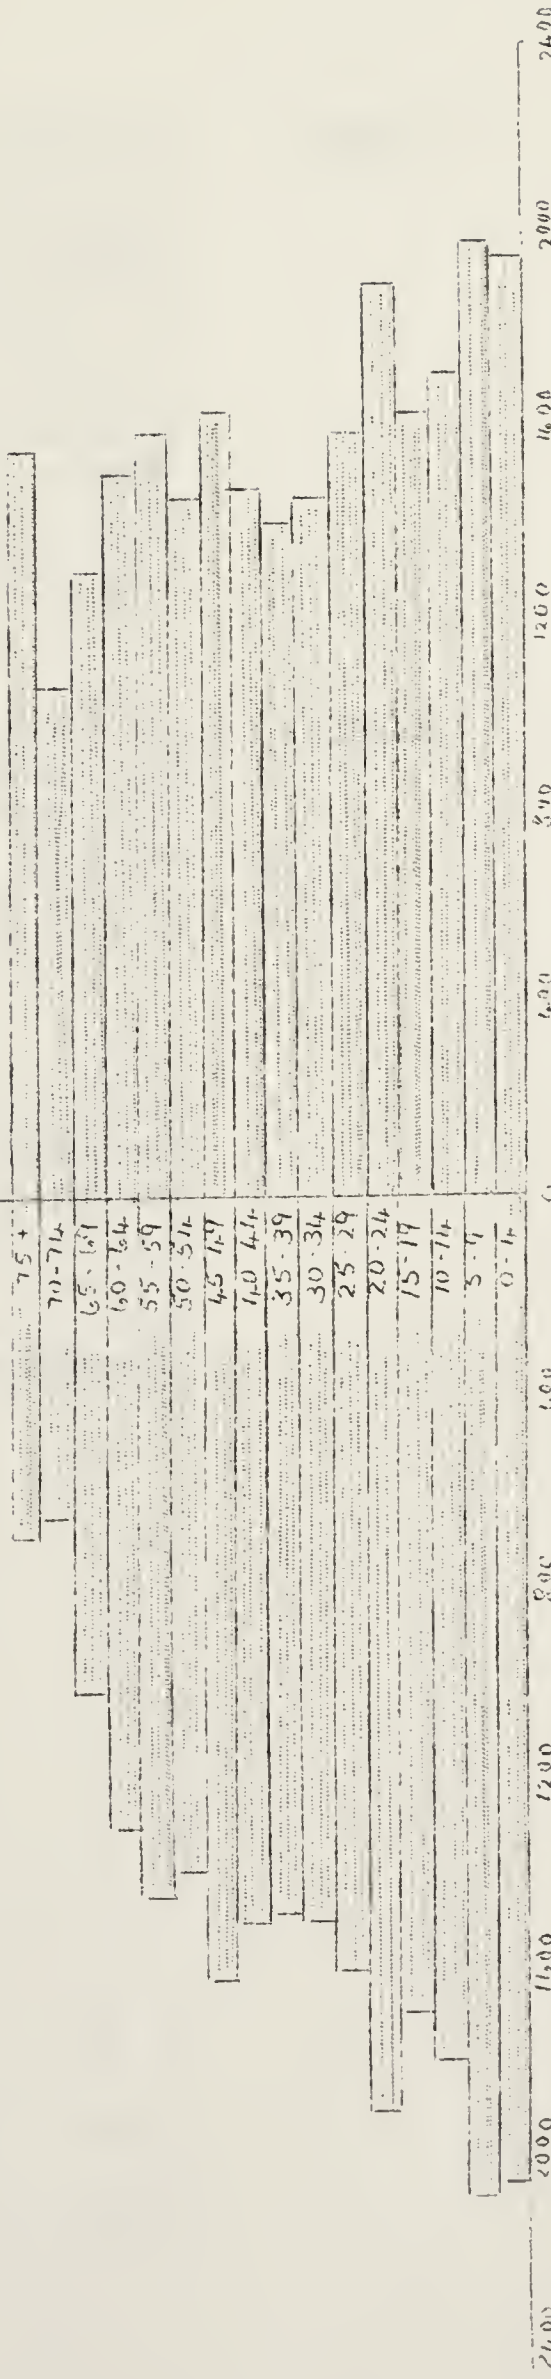 75+
70-74
65-69
60-64
55-59
50-54
45-49
40-44
35-39
30-34
25-29
20-24
15-19
10-14
5-9
0-4
2400 2000 1600 1200 800 400 0 400 800 1200 1600 2000 2400